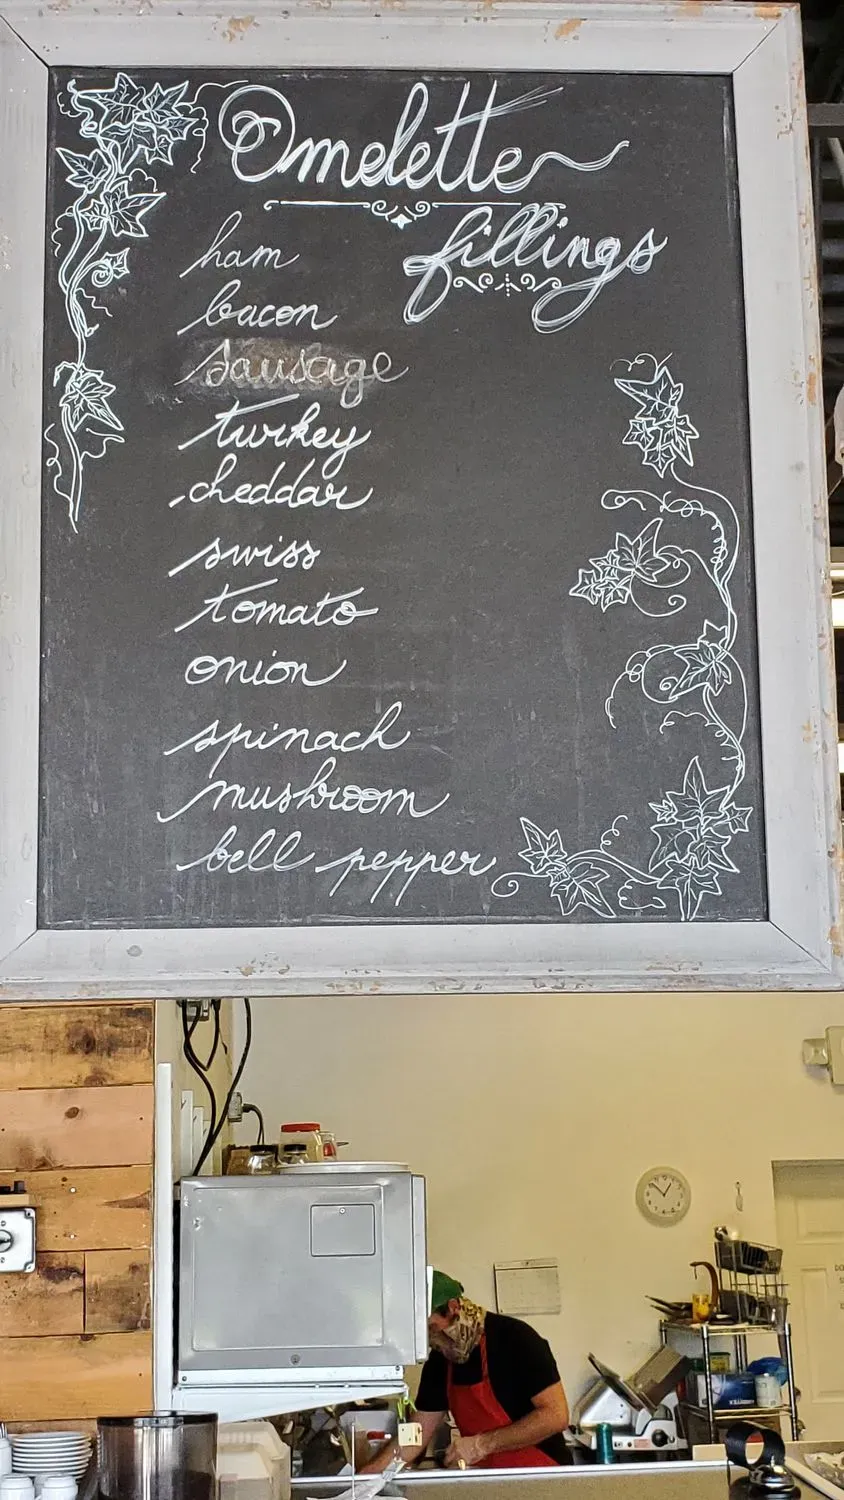 Omelette
fillings
ham
bacon
sausage
turkey
cheddar
swiss
tomato
onion
spinach
mushroom
bell pepper